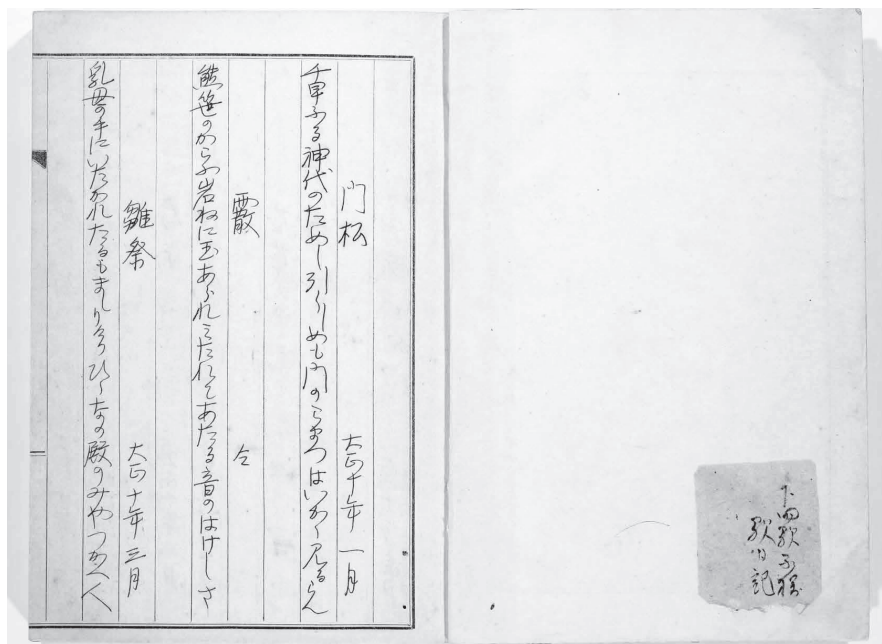 下田歌子様
歌日記
門松 大正十年 一月
千早ふる神代のためし引くしめも門のこまつはいかゝ見るらん
霰 仝
熊笹のかこふ岩ねに玉あられみたれてあたる音のはけしさ
雛祭 大正十年 三月
乳母の手にいたかれたるもましりけりひゝなの殿のみやつかへ人